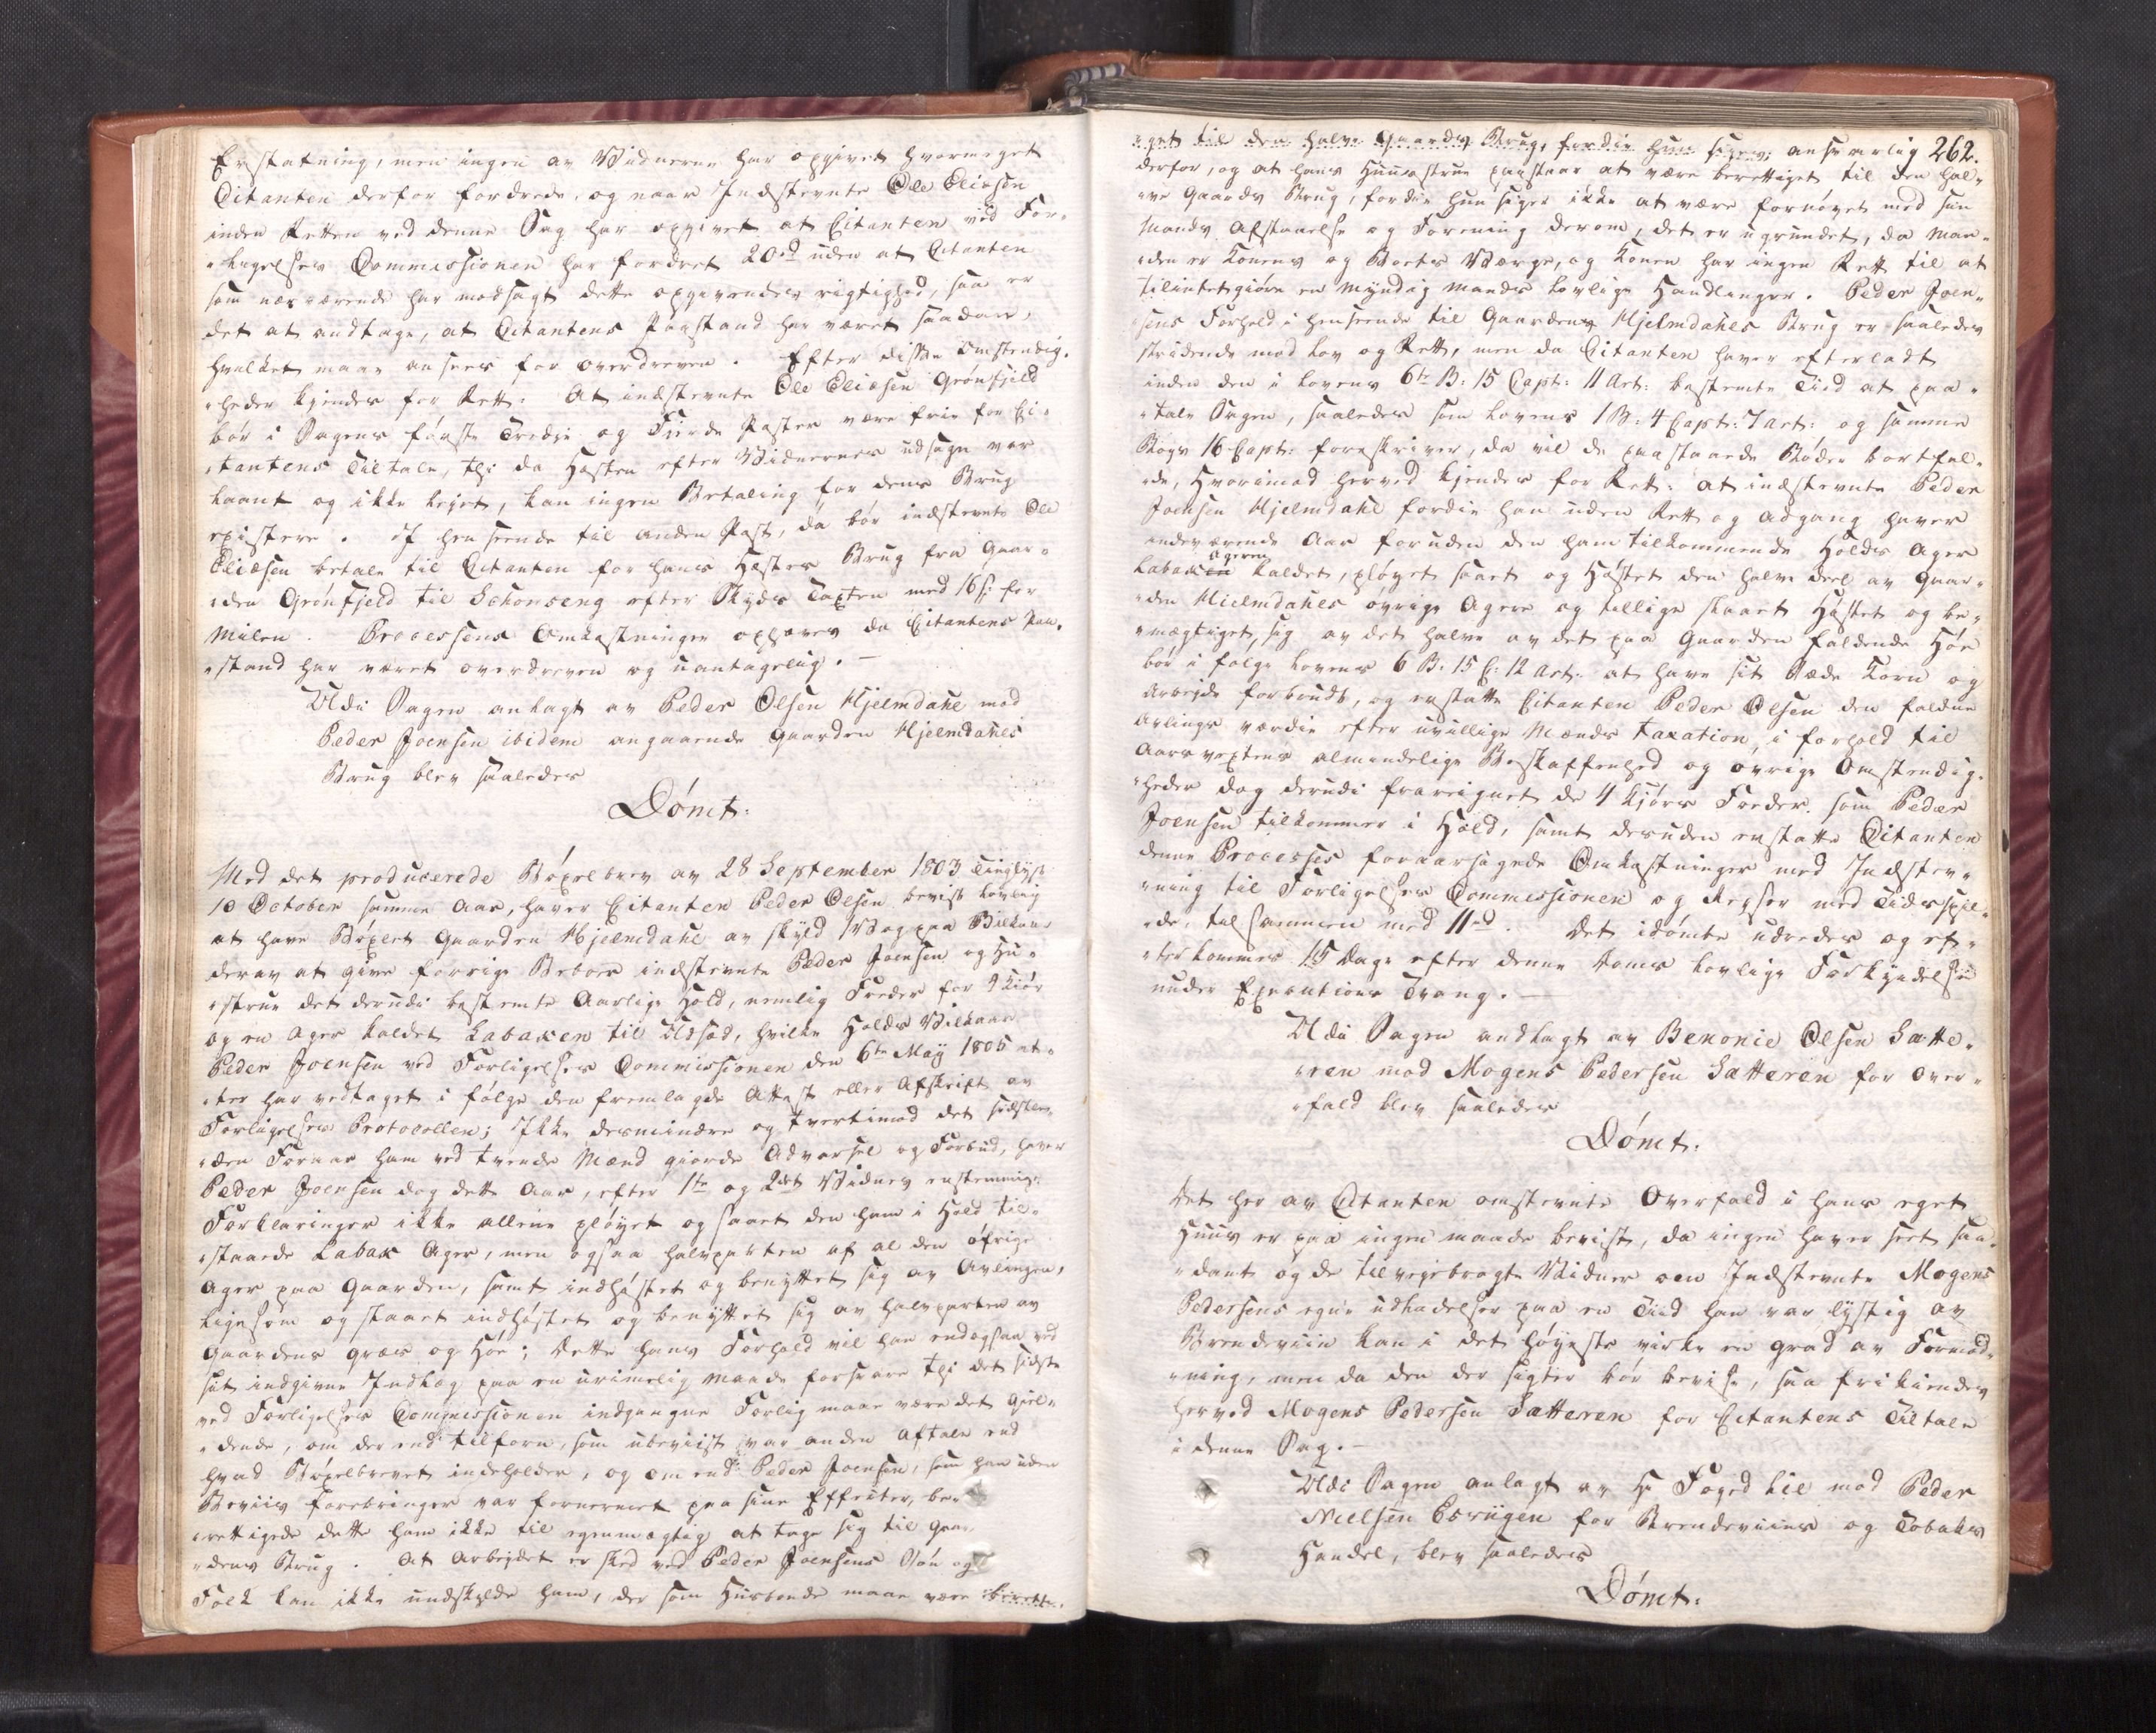 Erstatning, men ingen av Vidnerne har opgivet hvormeget
Citanten derfor fordrede, og naar Indstevnte Ole Eliæsen
inden Retten ved denne Sag har opgivet at Citanten ved For-
-ligelses Commissionen har fordret 20rd uden at Citanten
som nærværende har modsagt dette opgivendes rigtighed, saa er
det at andtage, at Citantens Paastand har været saadan,
hvilket maae ansees for overdreven. Efter disse Omstendig-
-heder kjendes for Rett: At indstevnte Ole Eliæsen Grönfjeld
bör i Sagens förste Tredje og Fierde Poster være frie for Ci-
-tantens Tiltale, thi da Hæsten efter Vidnernes udsagn var
laant og ikke lejet, kan ingen Betaling for dens Brug
existere. I henseende til anden Post, da bör indstevnte Ole
Eliæsen betale til Citanten for hans Hæstes Brug fra Gaar-
-den Grönfjeld til Schonseng efter Skyds Taxten med 16 s: for
Milen. Processens Omkostninger ophæves da Citantens Paa-
-stand har været overdreven og uantagelig. —
Udi Sagen anlagt av Peder Olsen Hjelmdahl mod
Peder Joensen ibidem angaaende Gaarden Hjelmdahls
Brug blev saaledes
Dömt:
Med det producerede Böxelbrev av 28 September 1803 Tinglyst
10 October samme Aar, haver Citanten Peder Olsen bevist lovlig
at have Böxlet Gaarden Hjelmdahl av skyld 1 Vog paa Vilkaar
derav at give forrige Beboer indstevnte Peder Joensen og Hu-
-strue det derudi bestemte Aarlige Hold, nemlig Foeder for 4 Kiör
og en Ager kaldet Labaken til Udsæd, hvilke Holds Vilkaar
Peder Joensen ved Forligelses Commissionen den 6te Maÿ 1805 at-
-ter har vedtaget i fölge den fremlagde Attest eller Afskrift av
Forligelses Protocollen; Ikke desmindre og tvertimod det sidstle-
-den Foraar ham ved tvende Mænd giorde Advarsel og Forbud, haver
Peder Joensen dog dette Aar, efter 1te og 2det Vidnes enstemmige
Forklaringer ikke allene plöyet og saaet den ham i Hold til-
-staaede Labak Ager, men ogsaa halvparten af al den öfrige
Ager paa Gaarden, samt indhöstet og benyttet sig av Avlingen,
ligesom og slaaet indhöstet og benyttet sig av halvparten av
Gaardens Græs og Höe; Dette hans Forhold vil han endogsaa ved
sit indgivne Indlæg paa en urimelig maade forsvare thi det sidste
ved Forligelses Commissionen indgangne Forlig maae være det giel-
-dende, om der end tilforn, som ubeviist, var anden Aftale end
hvad Böxelbrevet indeholder, og om end Peder Joensen, som han uden
Beviis forebringer var fornermet paa sine Effecter, be-
-rettigede dette ham ikke til egenmægtig at tage sig til Gaar-
-dens Brug. At Arbejdet er skeed ved Peder Joensens Sön og
Folk kan ikke undskylde ham, der som Husbonde maae være beretti-
-get til den halve Gaards Brug, fordie hun siger; ansvarlig 262.
derfor, og at hans Huustrue paastaar at være berettiget til den hal-
-ve Gaards Brug, fordie hun siger ikke at være fornöyet med sin
Mands Afstaaelse og Forening derom, det er ugrundet, da Man-
-den er Konens og Boets Værge, og Konen har ingen Rett til at
tilintetgiöre en myndig Mands lovlige Handlinger. Peder Joen-
sens Forhold i henseende til Gaardens Hjelmdahls Brug er saaledes
stridende mod Lov og Rett, men da Citanten haver efterladt
inden den i Lovens 6te B: 15 Capt: 11 Art: bestemte Tiid at paa-
-tale Sagen, saaledes som Lovens 1 B: 4 Capt: 7 Art: og samme
Bogs 16 Capt: foreskriver, da vil de paastaaede Böder bortfal-
-de, Hvorimod herved kjendes for Rett: at indstevnte Peder
Joensen Hjelmdahl fordie han uden Rett og Adgang haver
indeværende Aar foruden den ham tilkommende Holds Ager
Labaken Ageren kaldet, plöyet saaet og Höstet den halve deel av Gaar-
-den Hielmdahls övrige Agere og tillige slaaet Höstet og be-
-mægtiget sig av det halve av det paa Gaarden faldende Höe
bör i fölge Lovens 6 B: 15 C: 12 Art: at have sit Sæde Korn og
Arbejde forbrudt, og erstatte Citanten Peder Olsen den faldne
Avlings værdie efter uvillige Mænds Taxation, i forhold til
Aarsvextens almindelige Beskaffenhed og övrige Omstendig-
-heder dog derudi fraregnet de 4 Kjörs Foeder som Peder
Joensen tilkommer i Hold, samt desuden erstatte Citanten
denne Processes foraarsagede Omkostninger med Indstev-
-ning til Forligelses Commissionen og Reyser med Tidsspil-
-de, tilsammen med 11rd. Det idömte udredes og ef-
-terkommes 15 Dage efter denne Doms lovlige Forkyndelse
under Executions Tvang. —
Udi Sagen andlagt av Benonie Olsen Sætte-
-ren mod Mogens Pedersen Sætteren for Over-
-fald blev saaledes
Dömt:
Det her av Citanten omstevnte Overfald i hans eget
Huus er paa ingen maade bevist, da ingen haver seet saa-
-dant og de tilvejebragte Vidner om Indstevnte Mogens
Pedersens egne udladelser paa en Tiid han var lystig av
Brendeviin kan i det höyeste virke en grad av Formod-
-ning, men da den der sigter bör bevise, saa frikiendes
herved Mogens Pedersen Sætteren for Citantens Tiltale
i denne Sag. —
Udi Sagen anlagt av Hr Foged Lie mod Peder
Nielsen for Brendeviins og Tobaks
Handel, blev saaledes
Dömt: